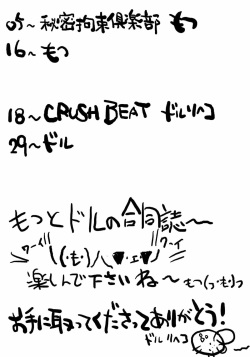 05~秘密拘束倶楽部 もつ
16~もつ
18~CRUSH BEAT ドルリハコ
29~ドル
もつとドルの合同誌~
ワーイ \(・も)八(▼・ェ▼)/ ワーイ
楽しんで下さいね~ もつ(っ・も)っ
お手に取ってくださってありがとう!
ドルリハコ